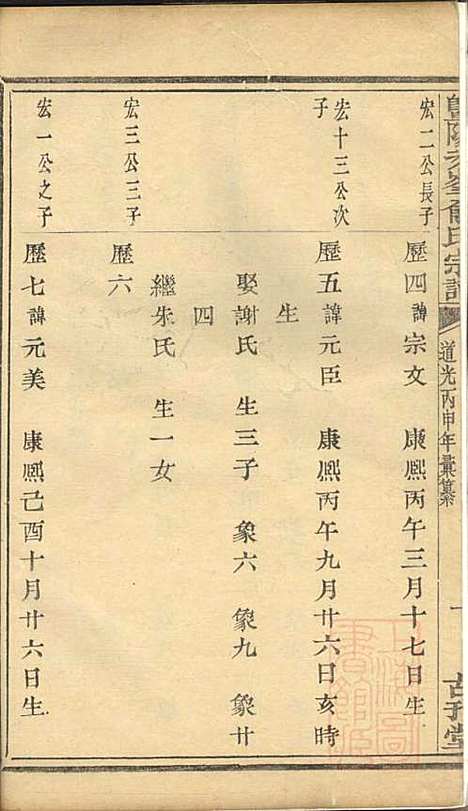 暨陽 俞氏宗譜 道光丙申年彙纂
古 堂
宏二公長子
歷四諱宗文 康熙丙午三月十七日生
宏十三公次
子
歷五諱元臣 康熙丙午九月廿六日亥時
生
娶謝氏 生三子 象六 象九 象廿
四
繼朱氏 生一女
宏三公三子
歷六
宏一公之子
歷七諱元美 康熙己酉十月廿六日生
上海圖
書館藏